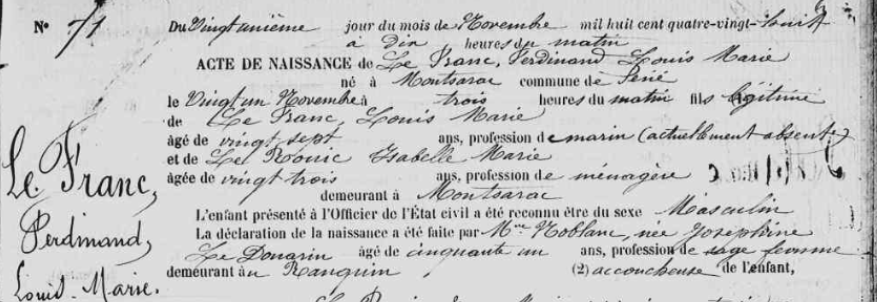 N° 71
Du Vingt unième jour du mois de Novembre mil huit cent quatre-vingt-huit
à Dix heures du matin
ACTE DE NAISSANCE de Le Franc, Ferdinand Louis Marie
né à Montsarac commune de Séné
le Vingt un Novembre à trois heures du matin fils légitime
de Le Franc, Louis Marie
âgé de vingt sept ans, profession de marin (actuellement absent)
et de Le Rouic Isabelle Marie
âgée de vingt trois ans, profession de ménagère
demeurant à Montsarac
L'enfant présenté à l'Officier de l'État civil a été reconnu être du sexe Masculin
La déclaration de la naissance a été faite par Mme Noblanc, née Joséphine
Le Douarin âgé de cinquante un ans, profession de sage femme
demeurant au Ranquin (2) accoucheuse de l'enfant,
Le Franc,
Ferdinand,
Louis-Marie.